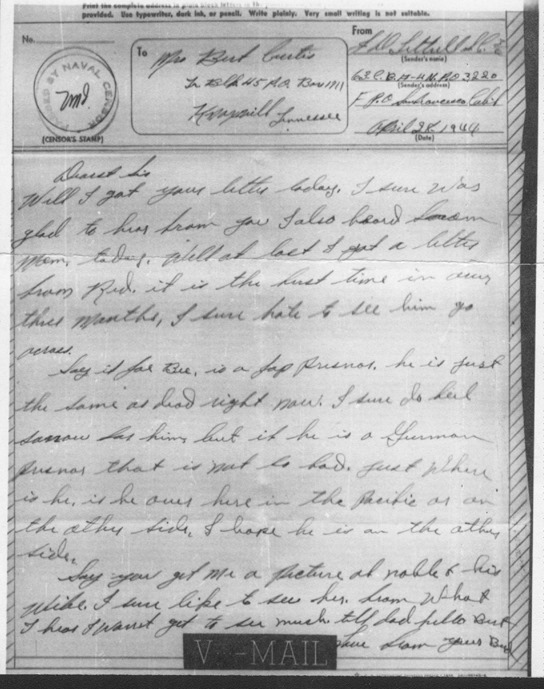 Print the complete address in plain block letters in
provided. Use typewriter, dark ink, or pencil. Write plainly. Very small writing is not suitable.
No.
PASSED BY NAVAL CENSOR
(CENSOR'S STAMP)
To
Mrs Burt Curtis
Box 1911
Tennessee
From
(Sender's name)
(Sender's address)
April 28, 1944
(Date)
Dearst Sis
Well I got your letter today. I sure was
glad to hear from you I also heard from
Mom, today. Well at last I got a letter
from Red. it is the first time in over
three months, I sure hate to see him go
across.
Say if Joe Bee. is a Jap Prisnor. he is just
the same as dead right now. I sure do feel
sorrow for him, but if he is a German
Prisnor that is not so bad. Just Where
is he, is he over here in the Pacific or on
the other side, I hope he is on the other
side.
Say you get me a picture of noble & his
wife. I sure like to see her. from What
I hear I to see much. tell dad hello Burt
Love from your Bud
V···-MAIL